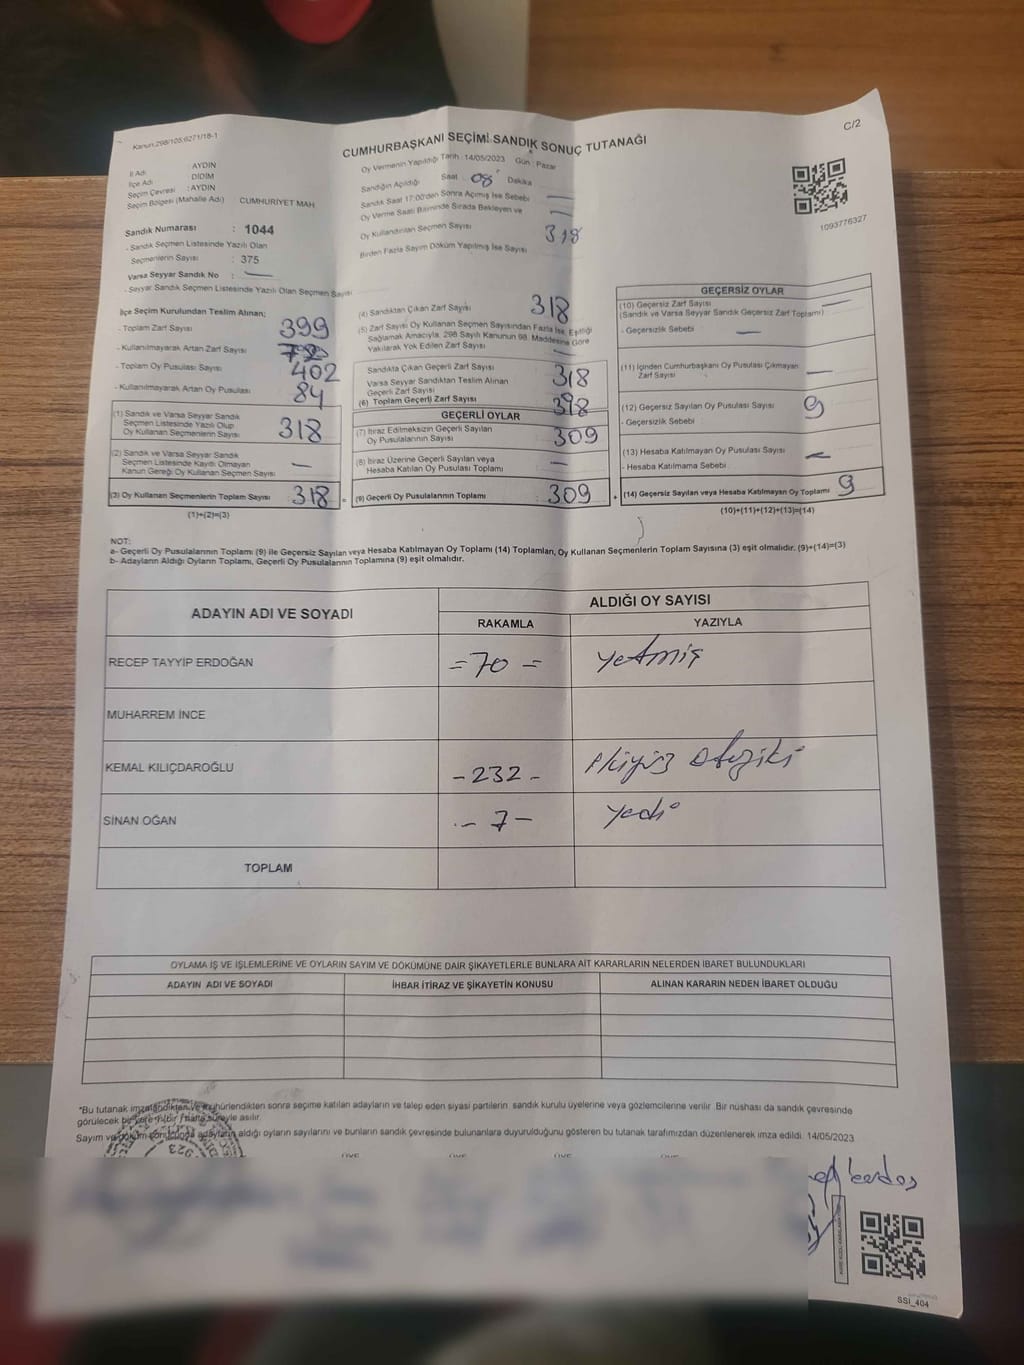 Kanun:298/105;6271/18-1
C/2
CUMHURBAŞKANI SEÇİMİ SANDIK SONUÇ TUTANAĞI
İl Adı : AYDIN
İlçe Adı : DİDİM
Seçim Çevresi : AYDIN
Seçim Bölgesi (Mahalle Adı) CUMHURİYET MAH.
Sandık Numarası : 1044
- Sandık Seçmen Listesinde Yazılı Olan
Seçmenlerin Sayısı : 375
Varsa Seyyar Sandık No : —
- Seyyar Sandık Seçmen Listesinde Yazılı Olan Seçmen Sayısı
Oy Vermenin Yapıldığı Tarih : 14/05/2023 Gün : Pazar
Sandığın Açıldığı Saat 08 Dakika
Sandık Saat 17:00'den Sonra Açılmış İse Sebebi —
Oy Verme Saati Bitiminde Sırada Bekleyen ve —
Oy Kullandırılan Seçmen Sayısı 318
Birden Fazla Sayım Döküm Yapılmış İse Sayısı
1093776327
İlçe Seçim Kurulundan Teslim Alınan;
- Toplam Zarf Sayısı 399
- Kullanılmayarak Artan Zarf Sayısı
- Toplam Oy Pusulası Sayısı 402
- Kullanılmayarak Artan Oy Pusulası 84
(1) Sandık ve Varsa Seyyar Sandık
Seçmen Listesinde Yazılı Olup
Oy Kullanan Seçmenlerin Sayısı 318
(2) Sandık ve Varsa Seyyar Sandık
Seçmen Listesinde Kaydı Olmayan
Kanun Gereği Oy Kullanan Seçmen Sayısı —
(3) Oy Kullanan Seçmenlerin Toplam Sayısı 318 =
(1)+(2)=(3)
(4) Sandıktan Çıkan Zarf Sayısı 318
(5) Zarf Sayısı Oy Kullanan Seçmen Sayısından Fazla İse, Eşitliği
Sağlamak Amacıyla, 298 Sayılı Kanunun 98. Maddesine Göre
Yakılarak Yok Edilen Zarf Sayısı —
Sandıkta Çıkan Geçerli Zarf Sayısı 318
Varsa Seyyar Sandıktan Teslim Alınan
Geçerli Zarf Sayısı
(6) Toplam Geçerli Zarf Sayısı 318
GEÇERLİ OYLAR
(7) İtiraz Edilmeksizin Geçerli Sayılan
Oy Pusulalarının Sayısı 309
(8) İtiraz Üzerine Geçerli Sayılan veya
Hesaba Katılan Oy Pusulası Toplamı —
(9) Geçerli Oy Pusulalarının Toplamı 309 +
GEÇERSİZ OYLAR
(10) Geçersiz Zarf Sayısı —
(Sandık ve Varsa Seyyar Sandık Geçersiz Zarf Toplamı)
- Geçersizlik Sebebi —
(11) İçinden Cumhurbaşkanı Oy Pusulası Çıkmayan
Zarf Sayısı —
(12) Geçersiz Sayılan Oy Pusulası Sayısı 9
- Geçersizlik Sebebi
(13) Hesaba Katılmayan Oy Pusulası Sayısı —
- Hesaba Katılmama Sebebi
(14) Geçersiz Sayılan veya Hesaba Katılmayan Oy Toplamı 9
(10)+(11)+(12)+(13)=(14)
NOT:
a- Geçerli Oy Pusulalarının Toplamı (9) ile Geçersiz Sayılan veya Hesaba Katılmayan Oy Toplamı (14) Toplamları, Oy Kullanan Seçmenlerin Toplam Sayısına (3) eşit olmalıdır. (9)+(14)=(3)
b- Adayların Aldığı Oyların Toplamı, Geçerli Oy Pusulalarının Toplamına (9) eşit olmalıdır.
ADAYIN ADI VE SOYADI
ALDIĞI OY SAYISI
RAKAMLA YAZIYLA
RECEP TAYYİP ERDOĞAN =70= yetmiş
MUHARREM İNCE
KEMAL KILIÇDAROĞLU -232- ikiyüz otuziki
SİNAN OĞAN -7- yedi
TOPLAM
OYLAMA İŞ VE İŞLEMLERİNE VE OYLARIN SAYIM VE DÖKÜMÜNE DAİR ŞİKAYETLERLE BUNLARA AİT KARARLARIN NELERDEN İBARET BULUNDUKLARI
ADAYIN ADI VE SOYADI İHBAR İTİRAZ VE ŞİKAYETİN KONUSU ALINAN KARARIN NEDEN İBARET OLDUĞU
*Bu tutanak imzalandıktan ve mühürlendikten sonra seçime katılan adayların ve talep eden siyasi partilerin sandık kurulu üyelerine veya gözlemcilerine verilir. Bir nüshası da sandık çevresinde
görülecek bir yere 1 (bir) hafta süreyle asılır.
Sayım ve döküm sonucunda adayların aldığı oyların sayılarını ve bunların sandık çevresinde bulunanlara duyurulduğunu gösteren bu tutanak tarafımızdan düzenlenerek imza edildi. 14/05/2023
ÜYE ÜYE ÜYE ÜYE
SSI_404